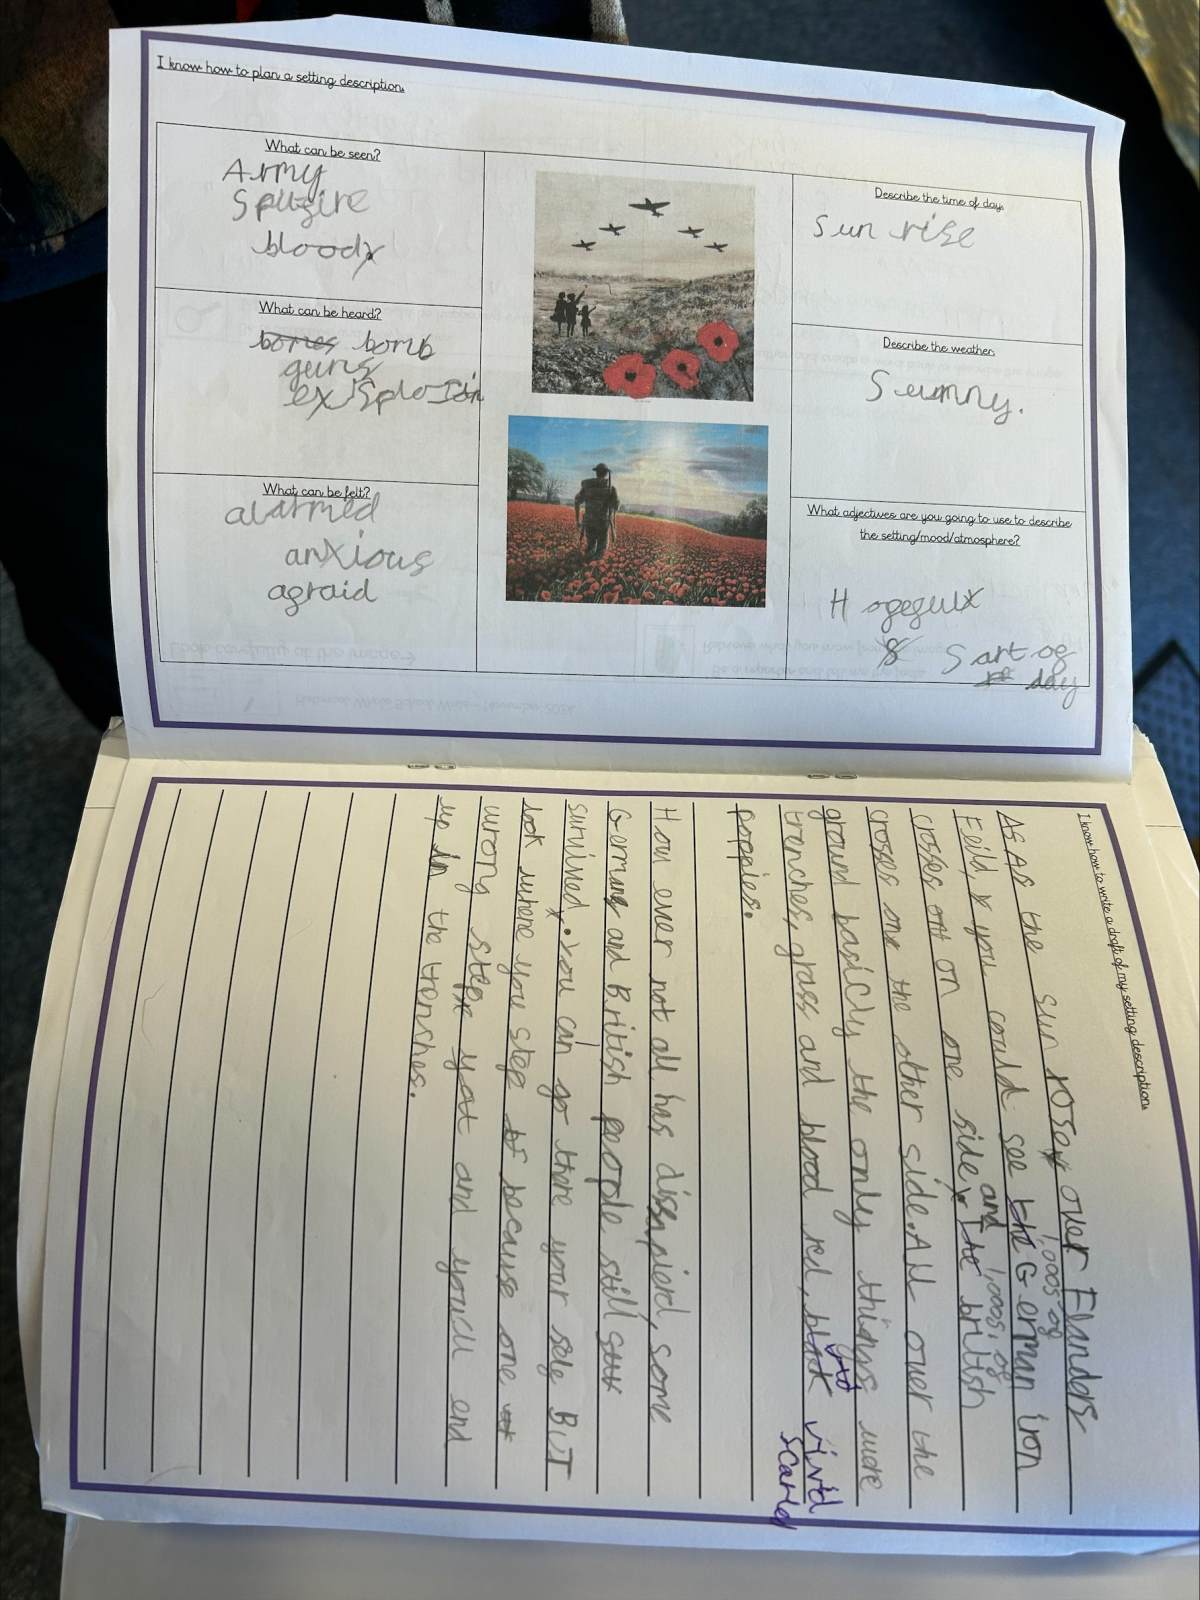 I know how to plan a setting description.
What can be seen?
Army
Spitfire
bloody
What can be heard?
bomes bomb
guns
exsplosion
What can be felt?
alarmed
anxious
afraid
Describe the time of day.
Sun rise
Describe the weather.
Sunny.
What adjectives are you going to use to describe
the setting/mood/atmosphere?
Hopefull
Sart of
day
I know how to write a draft of my setting description.
As As the sun rose over Flanders
1,000s of
Feild, you could see the German iron
and 1,000s, of
crosses on one side. The british
crosses on the other side. All over the
ground basicly the only things were
trenches, grass and blood red, black vivid
scarlet
poppies.
How ever not all has dissapierd, some
Germans and British people still
survived. You can go there your self BUT
look where you step because one
wrong step and youll end
up in the trenshes.